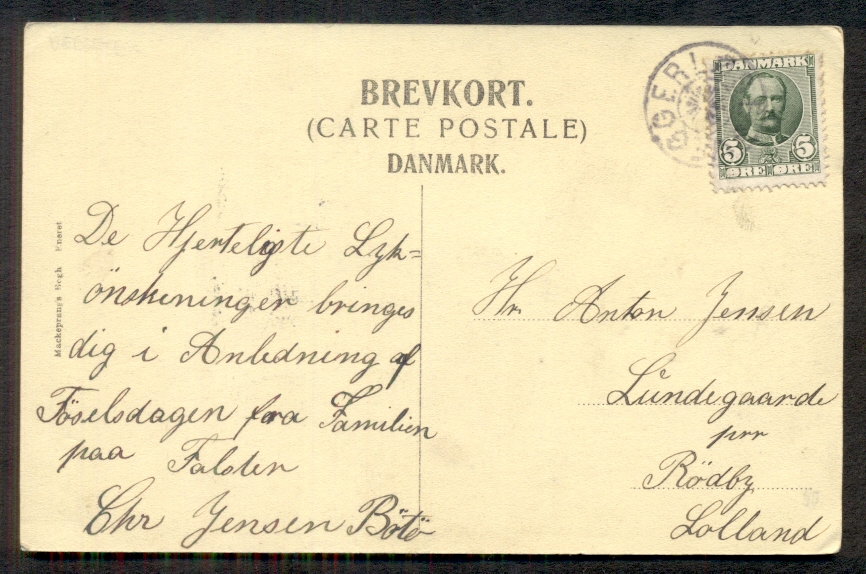 BREVKORT.
(CARTE POSTALE)
DANMARK.
DANMARK
5 5
ØRE ØRE
GGERL
Mackeprangs Bogh Eneret
De Hjerteligste Lyk=
önskeninger bringes
dig i Anledning af
Föselsdagen fra Familien
paa Falster
Chr Jensen Bötö
Hr. Anton Jensen
Lundegaarde
prr
Rödby
Lolland